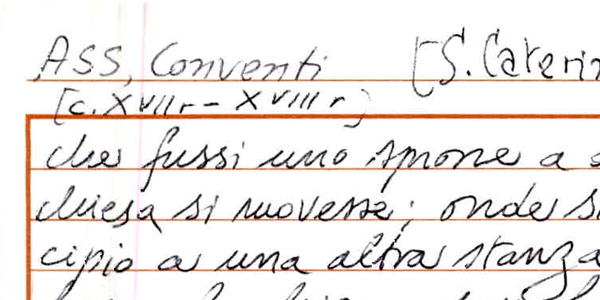 ASS, Conventi [S. Caterin
[c. XVIIr - XVIIIr]
che fussi uno sprone a
chiesa si movesse; onde si
cipio a una altra stanza